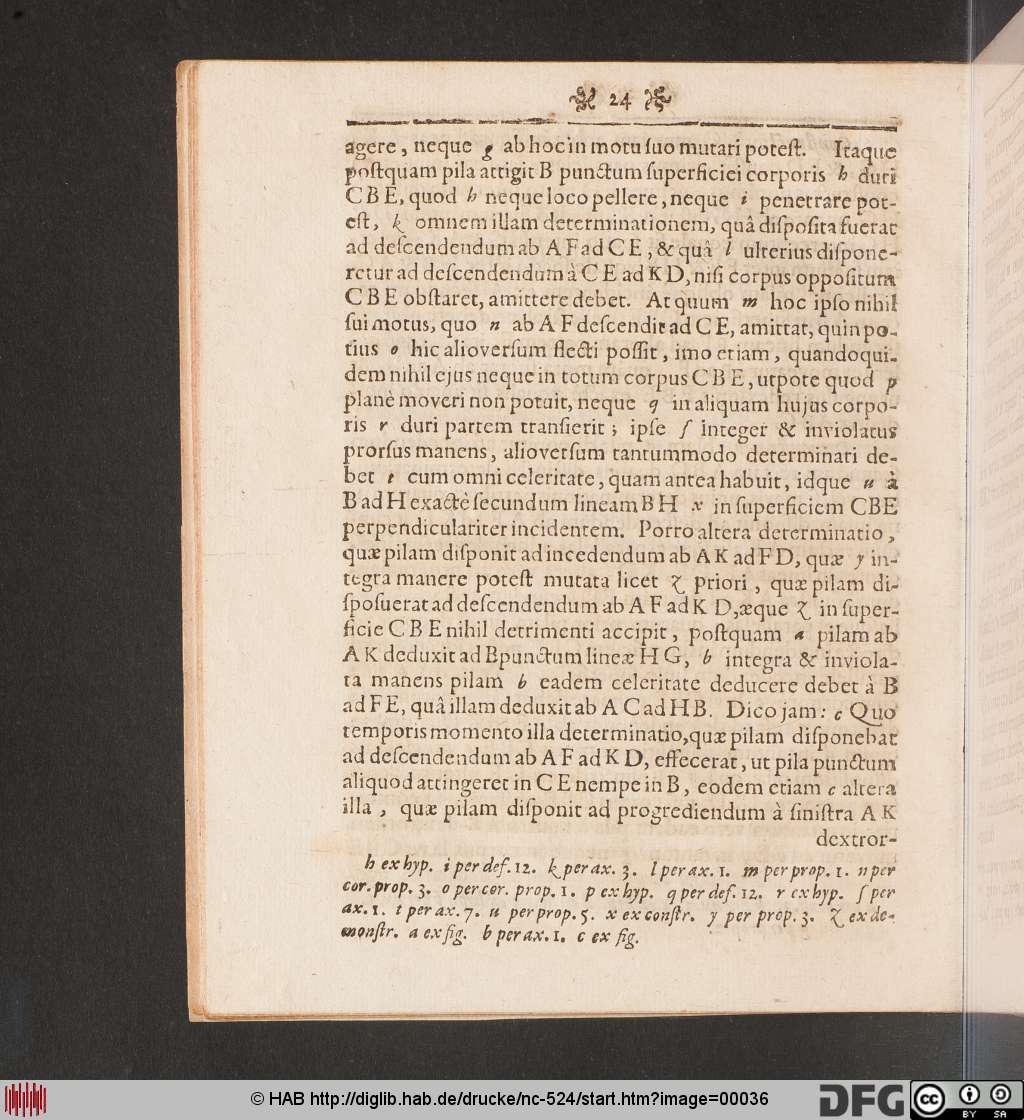 24
agere, neque g ab hoc in motu ſuo mutari poteſt. Itaque
poſtquam pila attigit B punctum ſuperficiei corporis h duri
CBE, quod h neque loco pellere, neque i penetrare pot-
eſt, k omnem illam determinationem, quâ diſpoſita fuerat
ad deſcendendum ab AF ad CE, & quâ l ulterius diſpone-
retur ad deſcendendum à CE ad KD, niſi corpus oppoſitum
CBE obſtaret, amittere debet. At quum m hoc ipſo nihil
ſui motus, quo n ab AF deſcendit ad CE, amittat, quin po-
tius o hic alioverſum flecti poſſit, imo etiam, quandoqui-
dem nihil ejus neque in totum corpus CBE, utpote quod p
planè moveri non potuit, neque q in aliquam hujus corpo-
ris r duri partem tranſierit; ipſe ſ integer & inviolatus
prorſus manens, alioverſum tantummodo determinati de-
bet t cum omni celeritate, quam antea habuit, idque u à
B ad H exactè ſecundum lineam BH x in ſuperficiem CBE
perpendiculariter incidentem. Porro altera determinatio,
quæ pilam diſponit ad incedendum ab AK ad FD, quæ y in-
tegra manere poteſt mutata licet z priori, quæ pilam di-
ſpoſuerat ad deſcendendum ab AF ad KD, æque z in ſuper-
ficie CBE nihil detrimenti accipit, poſtquam a pilam ab
AK deduxit ad B punctum lineæ HG, b integra & inviola-
ta manens pilam b eadem celeritate deducere debet à B
ad FE, quâ illam deduxit ab AC ad HB. Dico jam: c Quo
temporis momento illa determinatio, quæ pilam diſponebat
ad deſcendendum ab AF ad KD, effecerat, ut pila punctum
aliquod attingeret in CE nempe in B, eodem etiam c altera
illa, quæ pilam diſponit ad progrediendum à ſiniſtra AK
dextror-
h ex hyp. i per def. 12. k per ax. 3. l per ax. 1. m per prop. 1. n per
cor. prop. 3. o per cor. prop. 1. p ex hyp. q per def. 12. r ex hyp. ſ per
ax. 1. t per ax. 7. u per prop. 5. x ex conſtr. y per prop. 3. z ex de-
monſtr. a ex fig. b per ax. 1. c ex fig.
© HAB http://diglib.hab.de/drucke/nc-524/start.htm?image=00036
DFG
cc BY SA